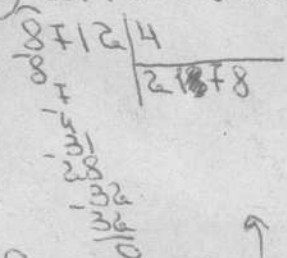 8712 4
-8 2178
7
-4
31
-28
-32
32
0